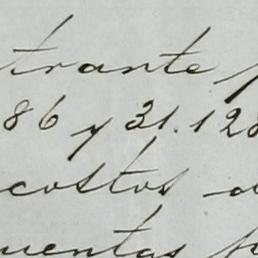 trante p
86 y 31.128
costos d
uentas p